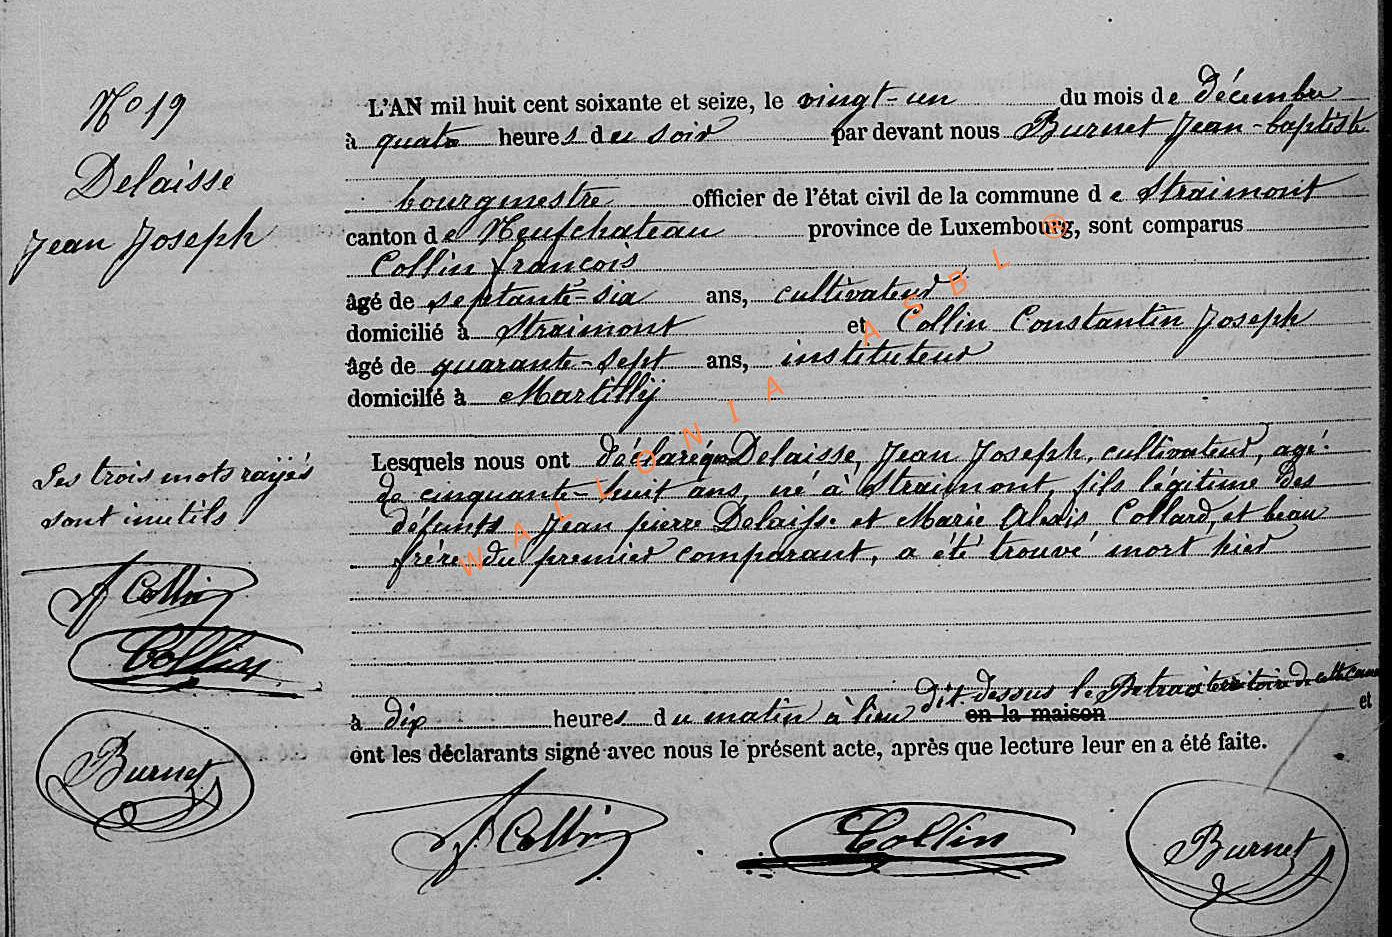 N° 19
Delaisse
Jean Joseph
L'AN mil huit cent soixante et seize, le vingt-un du mois de décembre
à quatre heures du soir par devant nous Burnet Jean-baptiste
bourgmestre officier de l'état civil de la commune de Straimont
canton de Neufchateau province de Luxembourg, sont comparus
Collin françois
âgé de septante-six ans, cultivateur
domicilié à Straimont et Collin Constantin Joseph
âgé de quarante-sept ans, instituteur
domicilié à Martilly
Lesquels nous ont déclaré que Delaisse, Jean Joseph, cultivateur, agé
de cinquante-huit ans, né à Straimont, fils légitime des
défunts Jean pierre Delaisse et Marie Alexis Collard, et beau
frère du premier comparant, a été trouvé mort hier
à dix heures du matin à lieu dit dessus le territoire de cette
en la maison et
ont les déclarants signé avec nous le présent acte, après que lecture leur en a été faite.
Les trois mots rayés
sont inutils
F Collin
Collin
Burnet
F Collin
Collin
Burnet
WALLONIA ASBL ®